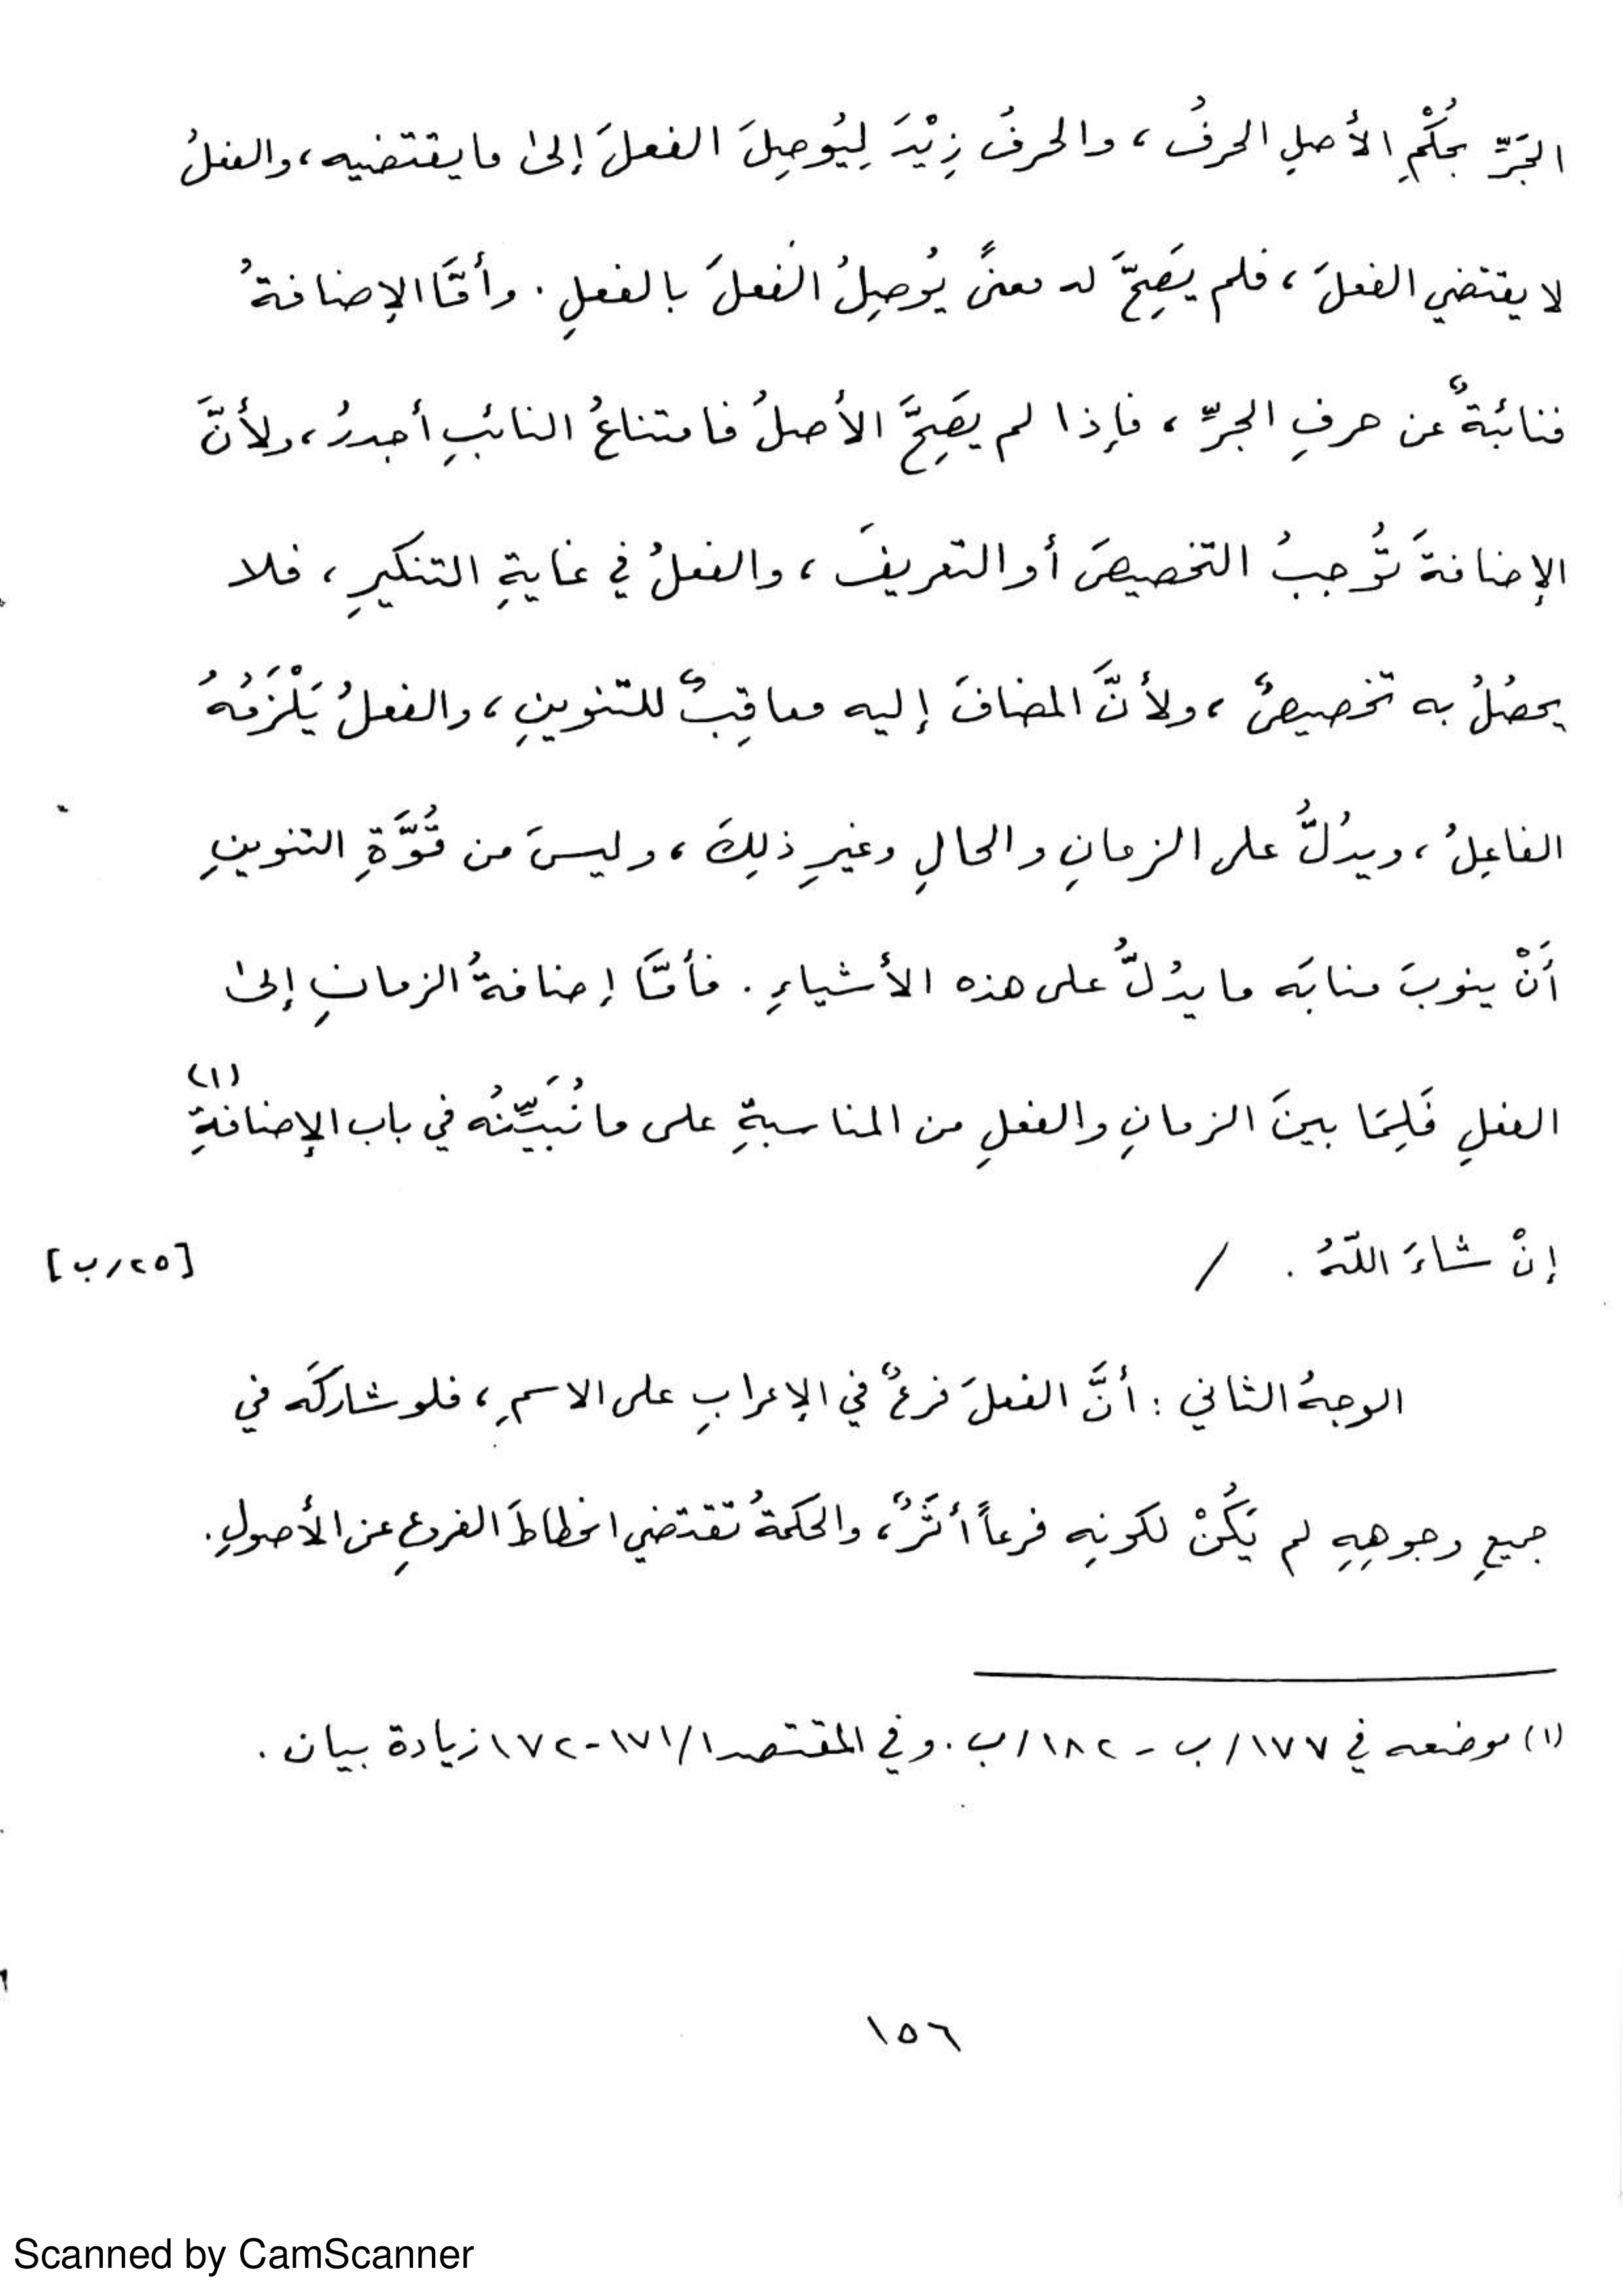 الجَرِّ بحُكْمِ الأصلِ الحرفُ، والحرفُ زِيْدَ لِيُوصِلَ الفعلَ إلىٰ ما يقتضيه، والفعلُ
لا يقتضي الفعلَ، فلم يَصِحَّ له معنىً يُوصِلُ الفعلَ بالفعلِ. وأمَّا الإضافةُ
فنائبةٌ عن حرفِ الجرِّ، فإذا لم يَصِحَّ الأصلُ فامتناعُ النائبِ أجدرُ، ولأنَّ
الإضافةَ تُوجبُ التخصيصَ أو التعريفَ، والفعلُ في غايةِ التنكيرِ، فلا
يحصُلُ به تخصيصٌ، ولأنَّ المضافَ إليه معاقِبٌ للتنوينِ، والفعلُ يَلْزَمُهُ
الفاعِلُ، ويدُلُّ على الزمانِ والحالِ وغيرِ ذلِكَ، وليسَ من قُوَّةِ التنوينِ
أنْ ينوبَ منابَه ما يدُلُّ على هذه الأشياءِ. فأمَّا إضافةُ الزمانِ إلىٰ
الفعلِ فَلِمَا بينَ الزمانِ والفعلِ من المناسبةِ على ما نُبَيِّنُه في باب الإضافةِ (١)
إنْ شاءَ اللّهُ. / [٢٥/ب]
الوجهُ الثاني: أنَّ الفعلَ فرعٌ في الإعرابِ على الاسمِ، فلو شاركَه في
جميعِ وجوهِهِ لم يَكُنْ لكونِه فرعاً أثَرٌ، والحكمةُ تقتضي انحطاطَ الفروعِ عن الأصولِ.
(١) موضعه في ١٧٧/ب - ١٨٢/ب. وفي المقتصد ١/١٧١-١٧٢ زيادة بيان.
١٥٦
Scanned by CamScanner